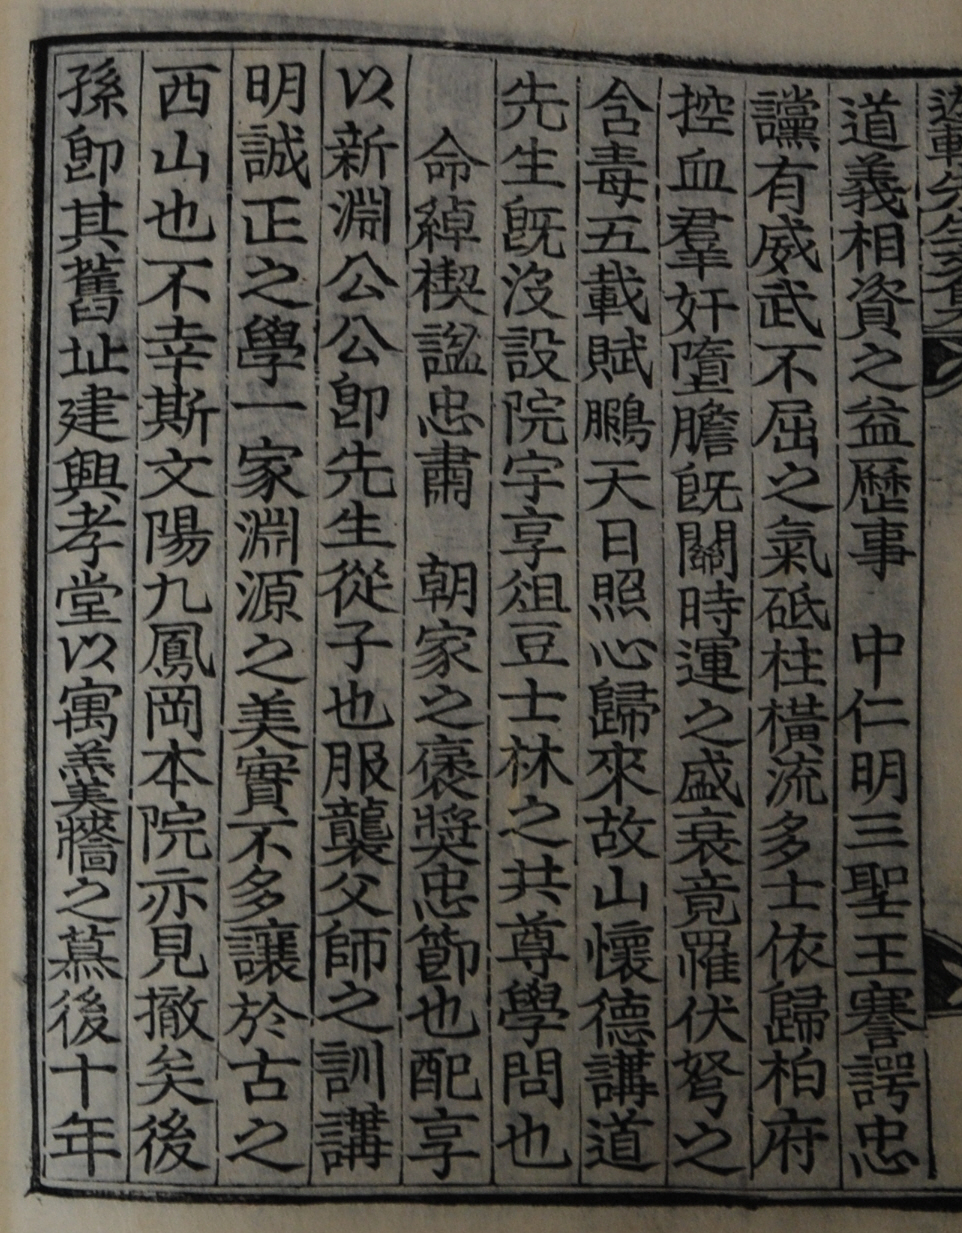 道義相資之益歷事 中仁明三聖王謇諤忠
讜有威武不屈之氣砥柱橫流多士依歸柏府
控血羣奸墮膽旣關時運之盛衰竟罹伏弩之
含毒五載賦鵩天日照心歸來故山懷德講道
先生旣沒設院宇享俎豆士林之共尊學問也
命綽楔諡忠肅 朝家之褒奬忠節也配享
以新淵公公卽先生從子也服襲父師之訓講
明誠正之學一家淵源之美實不多讓於古之
西山也不幸斯文陽九鳳岡本院亦見撤矣後
孫卽其舊址建興孝堂以寓羹牆之慕後十年